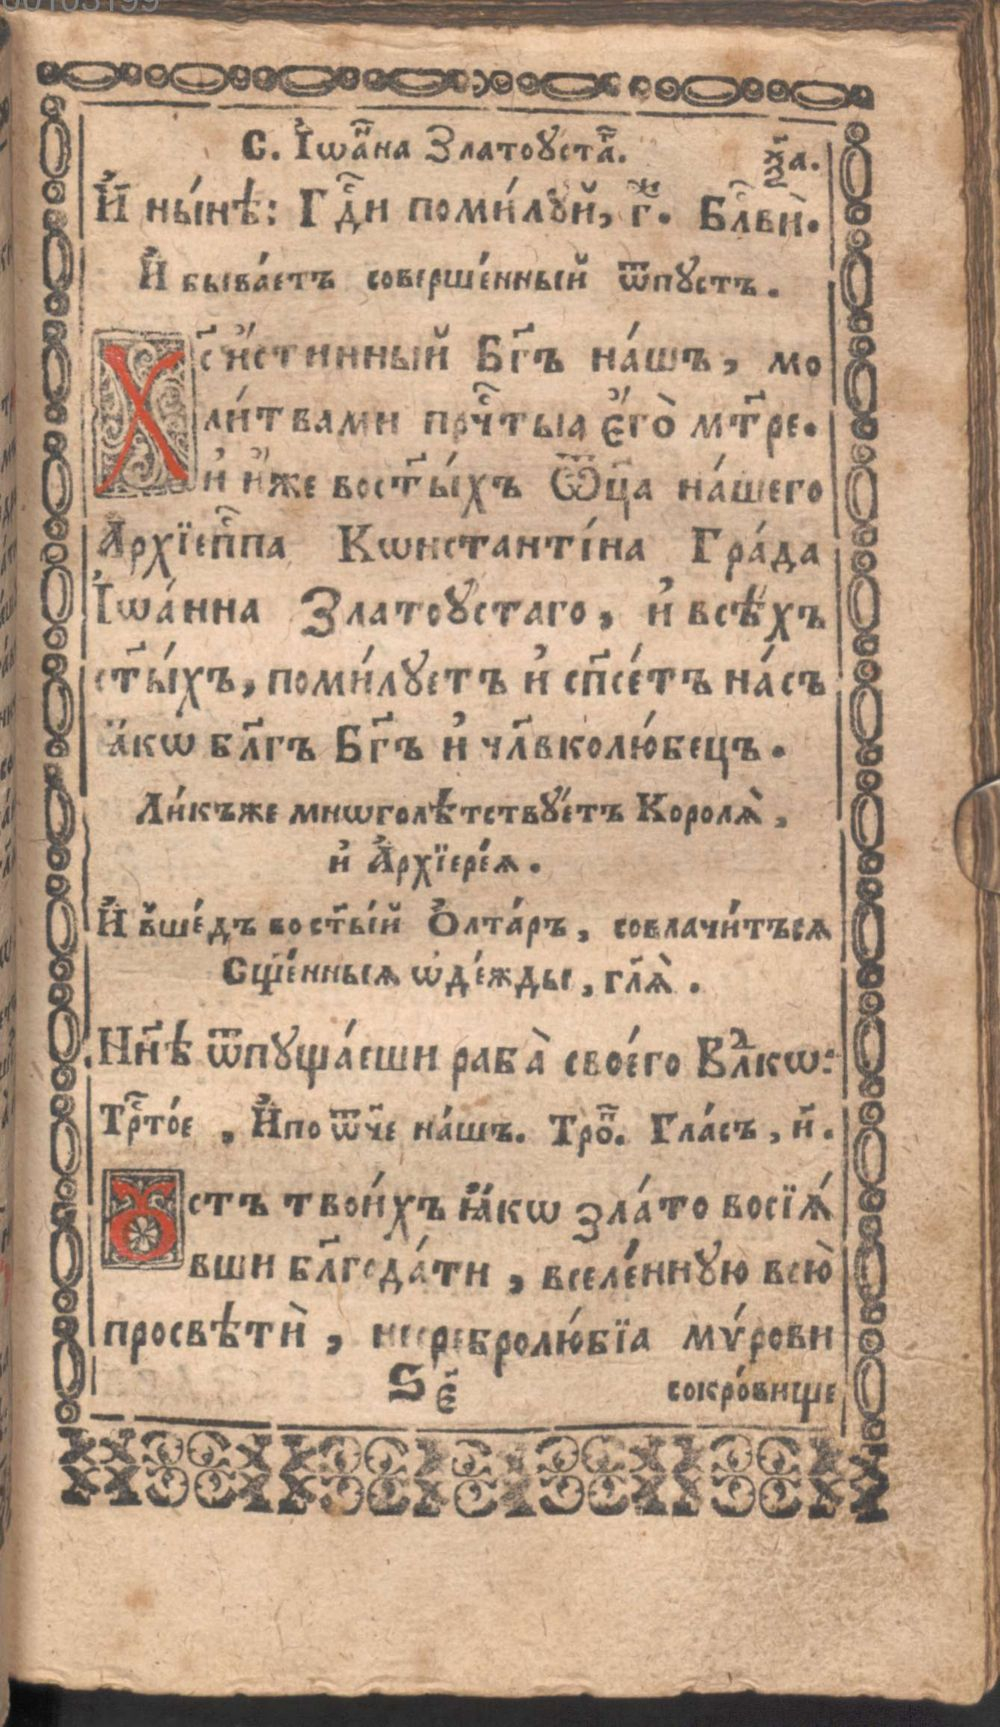 00103199
С. І҆ѡа́нна Златоꙋста҃. х҃а.
И҆ ны́нѣ: Гдⷭ҇и поми́лꙋй, г҃. Бл҃ви̇̀.
И҆ быва́етъ соверше́нный ѿпустъ.
Хс҃ и҆́стинный Бг҃ъ на́шъ, мо
ли́твами прчⷭ҇тыа є҆гѡ̀ мт҃ре.
и҆ и҆́же вост҃ы́хъ Ѿц҃а на́шего
А҆рхїепⷭ҇па Кѡнстанті́на Гра́да
І҆ѡа́нна Златоꙋстаго, и҆ всѣ́хъ
ст҃ы́хъ, поми́луетъ и҆ сп҃се́тъ на́съ
ꙗ҆́кѡ бл҃гъ Бг҃ъ и҆ чл҃вколю́бецъ.
Ли́къже мнѡголѣтствꙋ́етъ Королѧ̀,
и҆ А҆рхїере́ѧ.
И҆ вше́дъ вост҃ы́й О҆лта́ръ, совлачи́тъсѧ
Сщ҃е́нныѧ ѡ҆де́жды, гл҃ѧ̀.
Нн҃ѣ ѿпуща́еши раба̀ свое́го Влⷣкѡ:
Трⷭ҇то́е, И҆по ѿч҃е на́шъ. Тро́пⷬ. Гла́съ, и҃.
Ꙋстъ твои́хъ ꙗ҆́кѡ зла́то восїѧ́
вши бл҃года́ти, вселе́нную всю̀
просвѣтѝ, несребролю́бїа мѵ́рови
Ѕ є҃ сокро́вище